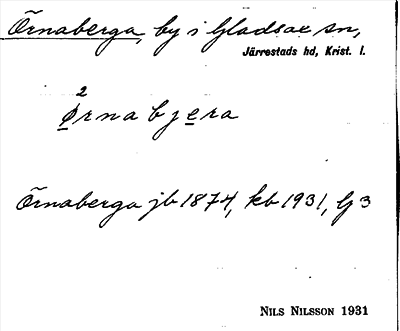 Örnaberga, by i Gladsax sn,
Järrestads hd, Krist. l.
2
ørnabjera
Örnaberga jb 1874, kb 1931, G 3
NILS NILSSON 1931